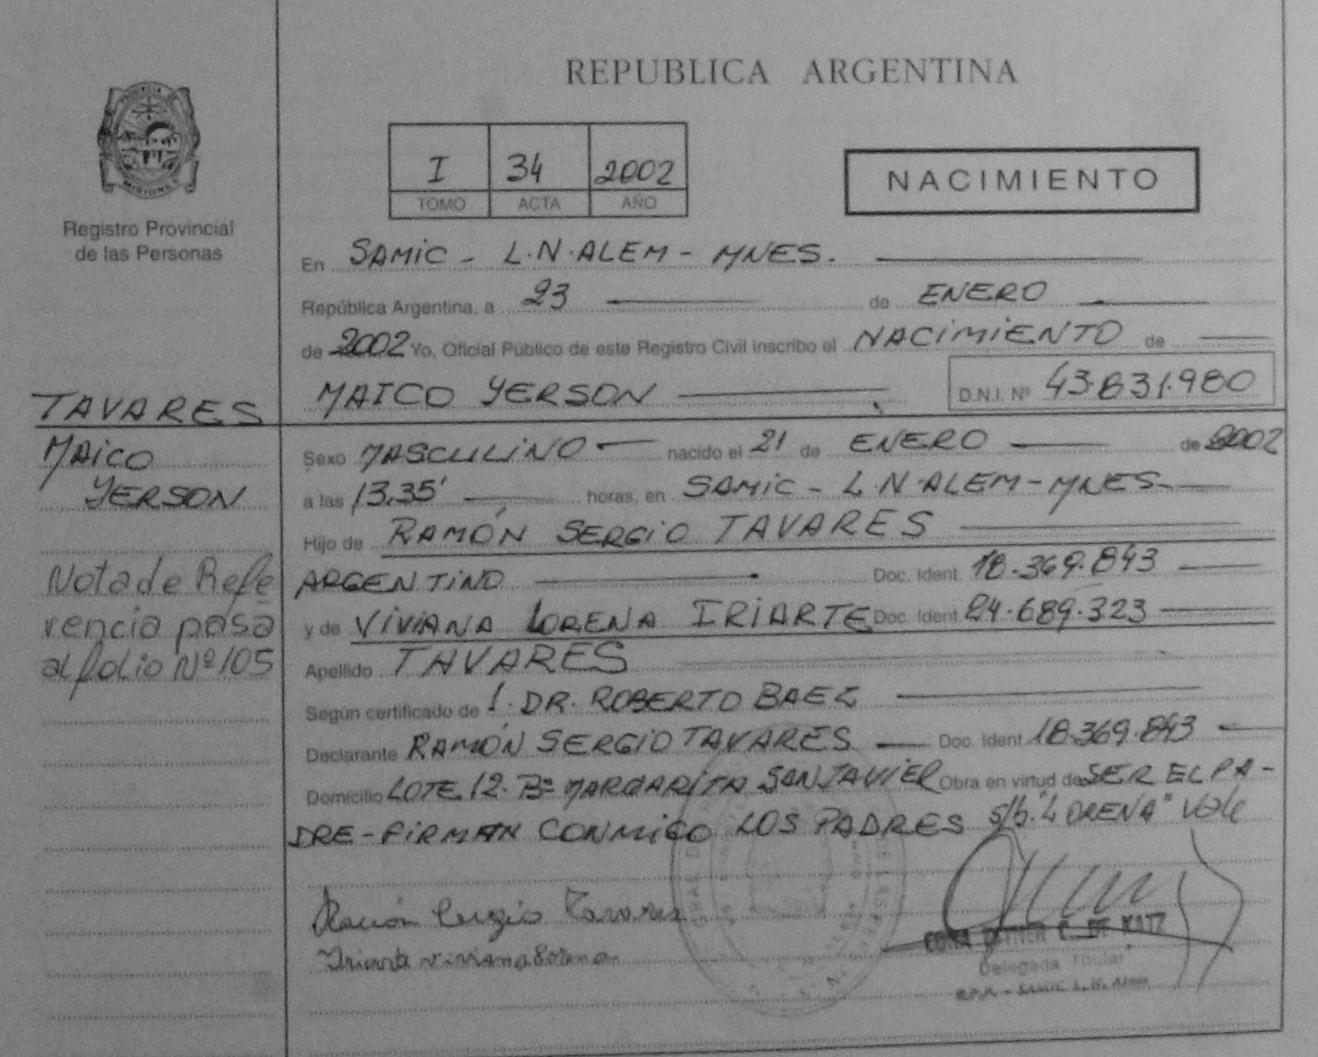 PROVINCIA DE
MISIONES
Registro Provincial
de las Personas
TAVARES
MAICO
YERSON
Nota de Refe
rencia pasa
al folio Nº 105
REPUBLICA ARGENTINA
I 34 2002
TOMO ACTA AÑO
NACIMIENTO
En SAMIC - L.N.ALEM - MNES.
República Argentina, a 23 de ENERO
de 2002 Yo, Oficial Público de este Registro Civil inscribo el NACIMIENTO de
MAICO YERSON D.N.I. Nº 43.831.980
Sexo MASCULINO nacido el 21 de ENERO de 2002
a las 13,35' horas, en SAMIC - L.N.ALEM-MNES
Hijo de RAMÓN SERGIO TAVARES
ARGENTINO Doc. Ident. 18.369.843
y de VIVIANA LORENA IRIARTE Doc. Ident. 24.689.323
Apellido TAVARES
Según certificado de 1. DR. ROBERTO BAEZ
Declarante RAMÓN SERGIO TAVARES Doc. Ident. 18.369.843
Domicilio LOTE 12. Bº MARGARITA SAN JAVIER Obra en virtud de SER EL PA-
DRE-FIRMAN CONMIGO LOS PADRES S/b. "LORENA" Vale
Ramón Sergio Tavares
Iriarte Viviana Lorena
C. DE KATZ
Delegada Titular
R.P.P. - SAMIC L.N. Alem